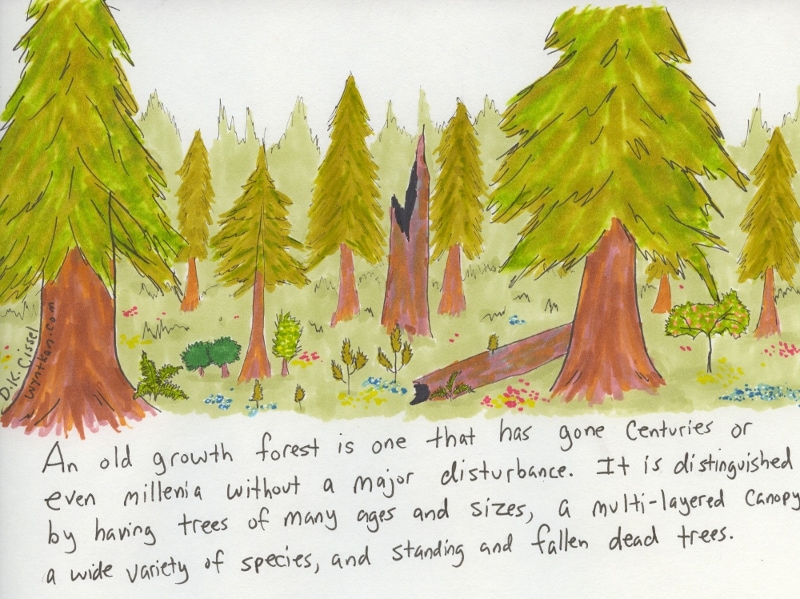 D.K. Cissel
wyatkan.com
An old growth forest is one that has gone centuries or
even millenia without a major disturbance. It is distinguished
by having trees of many ages and sizes, a multi-layered canopy
a wide variety of species, and standing and fallen dead trees.